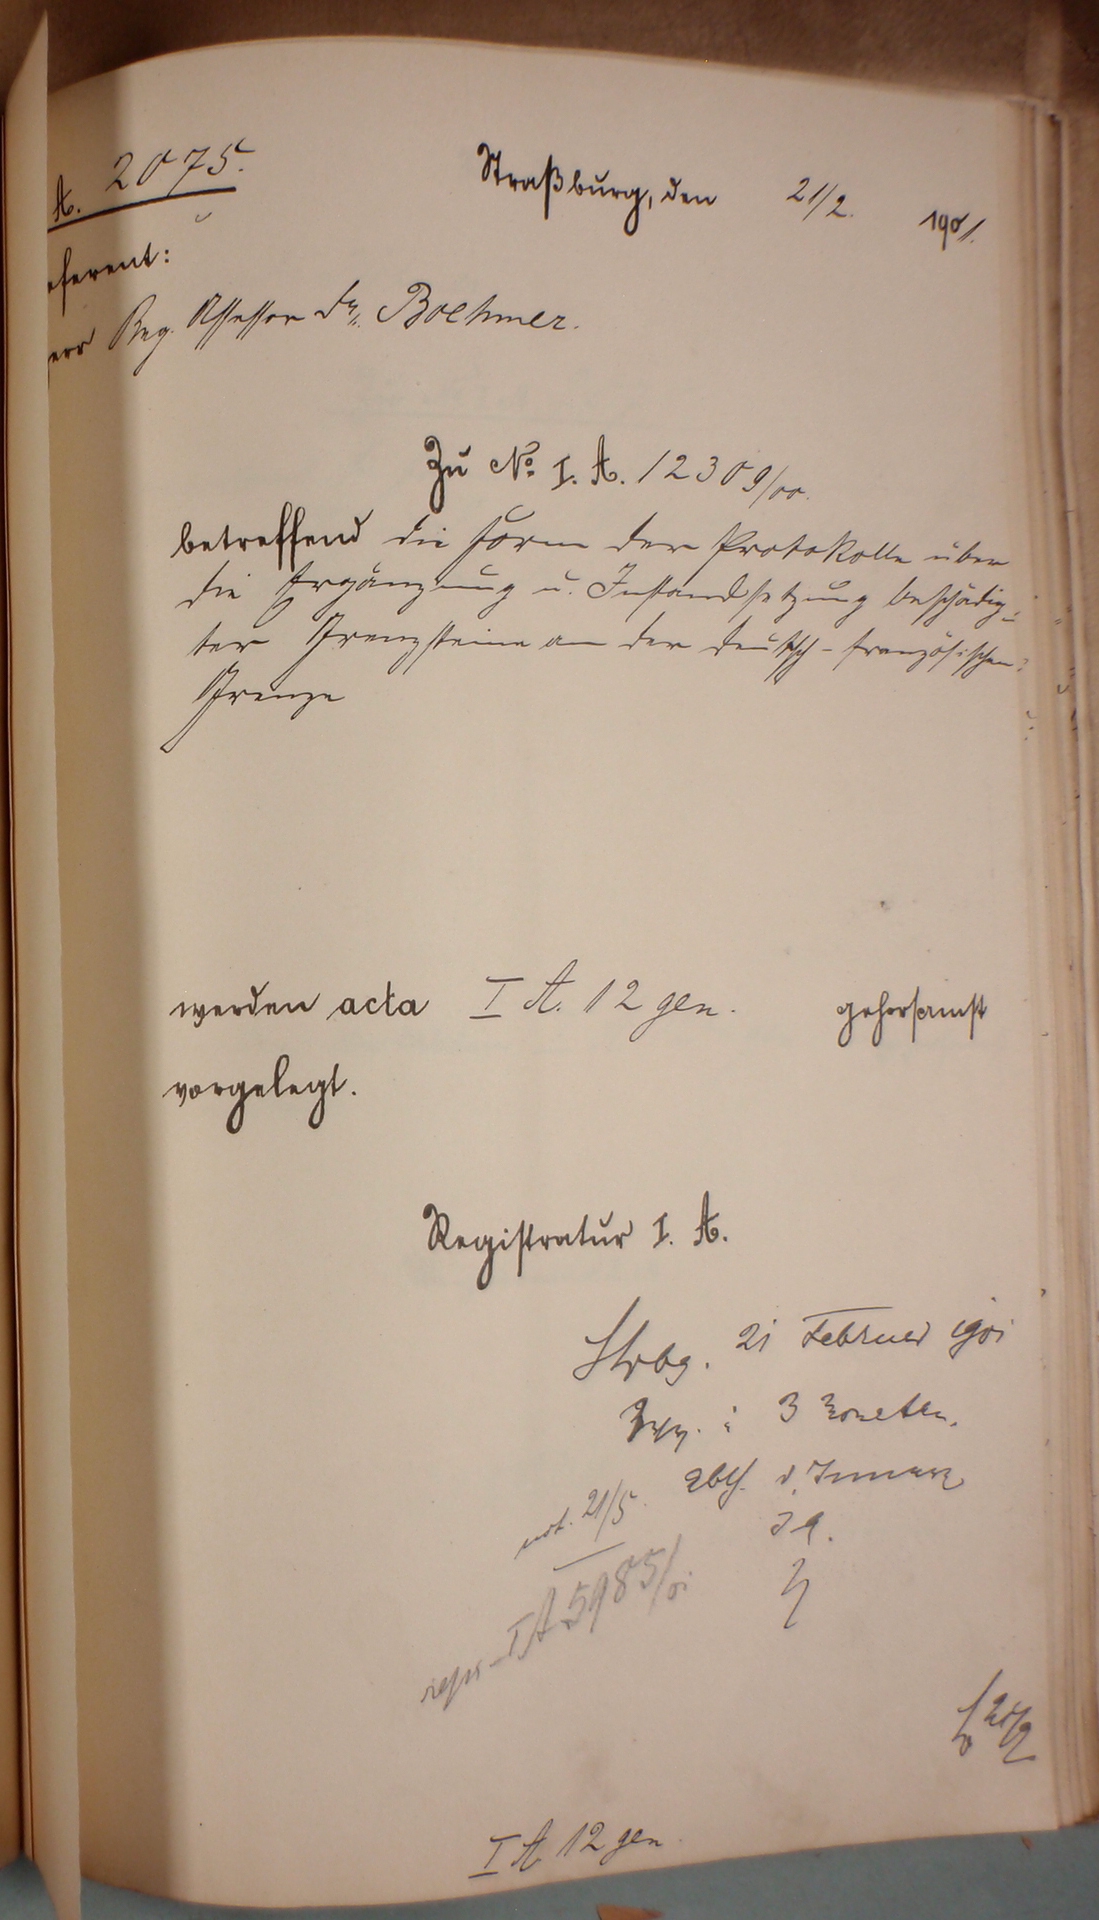 A. 2075.
Straßburg, den 21/2. 1901.
eferent:
err Reg. Assessor Dr. Boehmer.
Zu No. I. A. 12309/00.
betreffend die Form der Protokolle über
die Ergänzung u. Instandsetzung beschädig-
ter Grenzsteine an der deutsch-französischen
Grenze
werden acta I A. 12 gen. gehorsamst
vorgelegt.
Registratur I. A.
Strbg. 21 Februar 1901
3 Monaten.
Abth. d. Innern
not. 21/5.
I A.
I A 5985/01
21/2
I A 12 gen.